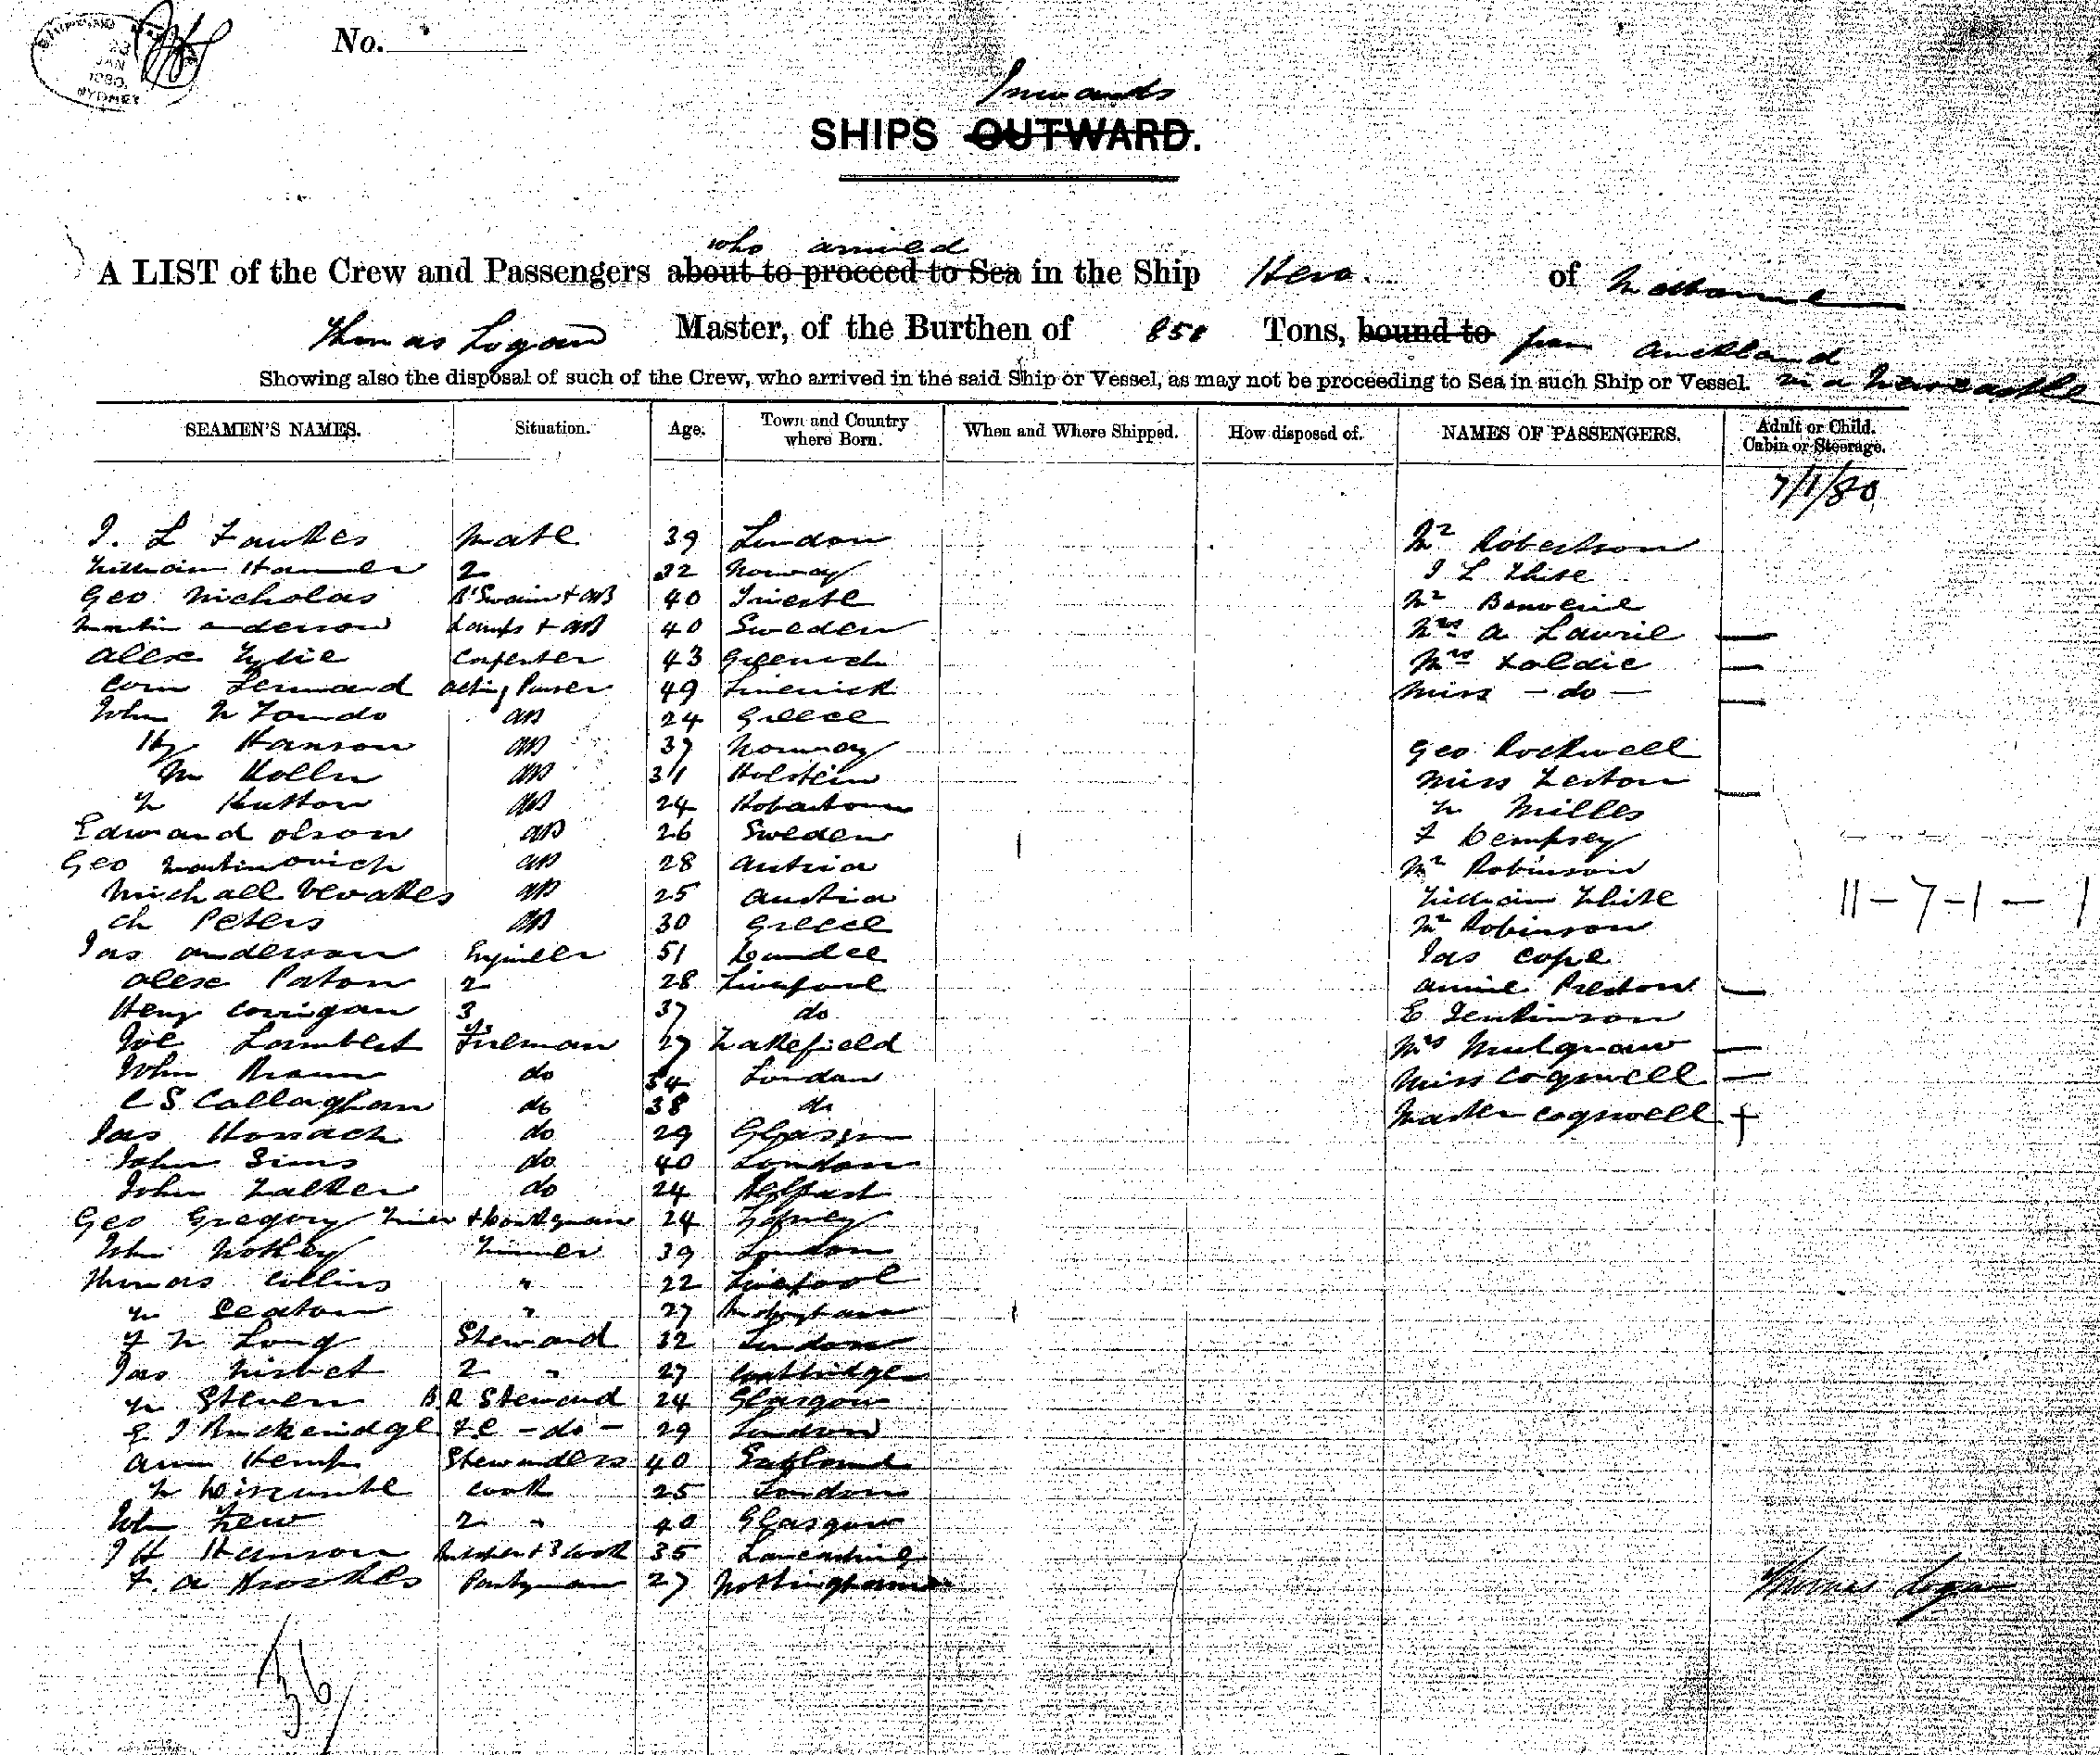 SHIPPING
23
JAN
1880
SYDNEY
No.
Inwards
SHIPS OUTWARD.
who arrived
A LIST of the Crew and Passengers about to proceed to Sea in the Ship Hero. of Melbourne
Thomas Logan Master, of the Burthen of 850 Tons, bound to from Auckland
Showing also the disposal of such of the Crew, who arrived in the said Ship or Vessel, as may not be proceeding to Sea in such Ship or Vessel. via Newcastle
SEAMEN'S NAMES. Situation. Age. Town and Country where Born. When and Where Shipped. How disposed of. NAMES OF PASSENGERS. Adult or Child. Cabin or Steerage.
7/1/80
J. L Fawkes Mate 39 London Mr Robertson
William 2 32 Norway J L White
Geo Nicholas B'Swain + AB 40 Trieste Mr
Martin Anderson Lamps + AB 40 Sweden Mrs A Laurie —
Alex Wylie Carpenter 43 Greenock Mrs Goldie —
Corn Lennard Acting Purser 49 Limerick Miss - do - —
John AB 24 Greece
Hy Hanson AB 37 Norway Geo Rockwell
Wm AB 31 Holstein Miss Weston —
W Hutton AB 24 Hobartown W Milles
Edward Olson AB 26 Sweden F Dempsey
Geo Martinovich AB 28 Austria Mr Robinson
Michall AB 25 Austria William White 11-7-1-1
Ch Peters AB 30 Greece Mr Robinson
Jas Anderson Engineer 51 Dundee Jas Cope
Alex Paton 2 28 Liverpool Annie Preston —
Heny Corrigan 3 37 do E Jenkinson
Joe Lambert Fireman 27 Wakefield Mrs —
John do 34 London Miss Cogswell —
C S Callaghan do 38 do Master Cogswell +
Jas Hossack do 29 Glasgow
John Sims do 40 London
John Walker do 24 Belfast
Geo Gregory 24 Sydney
John Notley Trimmer 39 London
Thomas Collins " 22 Liverpool
W Seaton " 27
F W Long Steward 32 London
Jas Nisbet 2 " 27 Coatbridge
W Steven B R Steward 24 Glasgow
E J Buckeridge F C - do - 29 London
Ann Hemp Stewardess 40 England
W Cook 25 London
John Few 2 " 40 Glasgow
J H Hanson Butcher + 3 Cook 35 Lancashire
F. A Brookes Pantryman 27 Nottingham
Thomas Logan
36